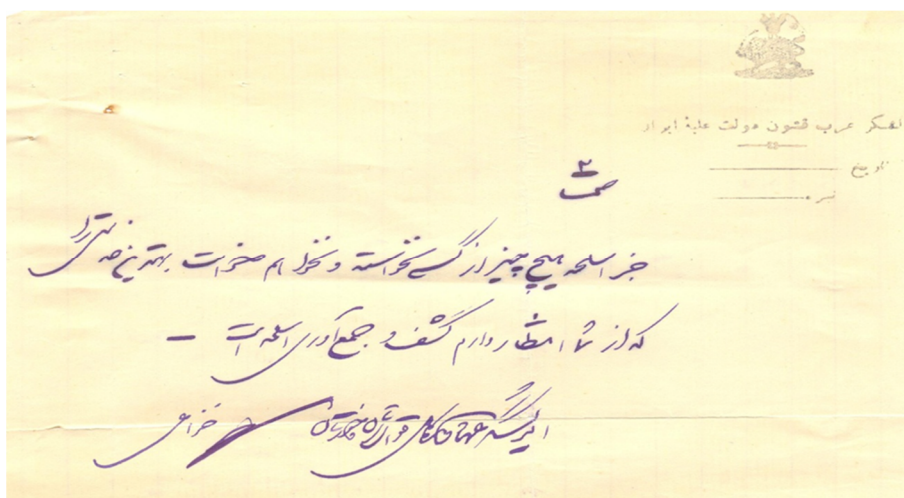 لشکر غرب قشون دولت علیهٔ ایران
تاریخ
نمره
جز اسلحه هیچ چیز از کسی نخواسته و نخواهم خواست بهترین خدمتی را
که از شما انتظار دارم کشف و جمع‌آوری اسلحه است –
امیر لشکر خزاعی